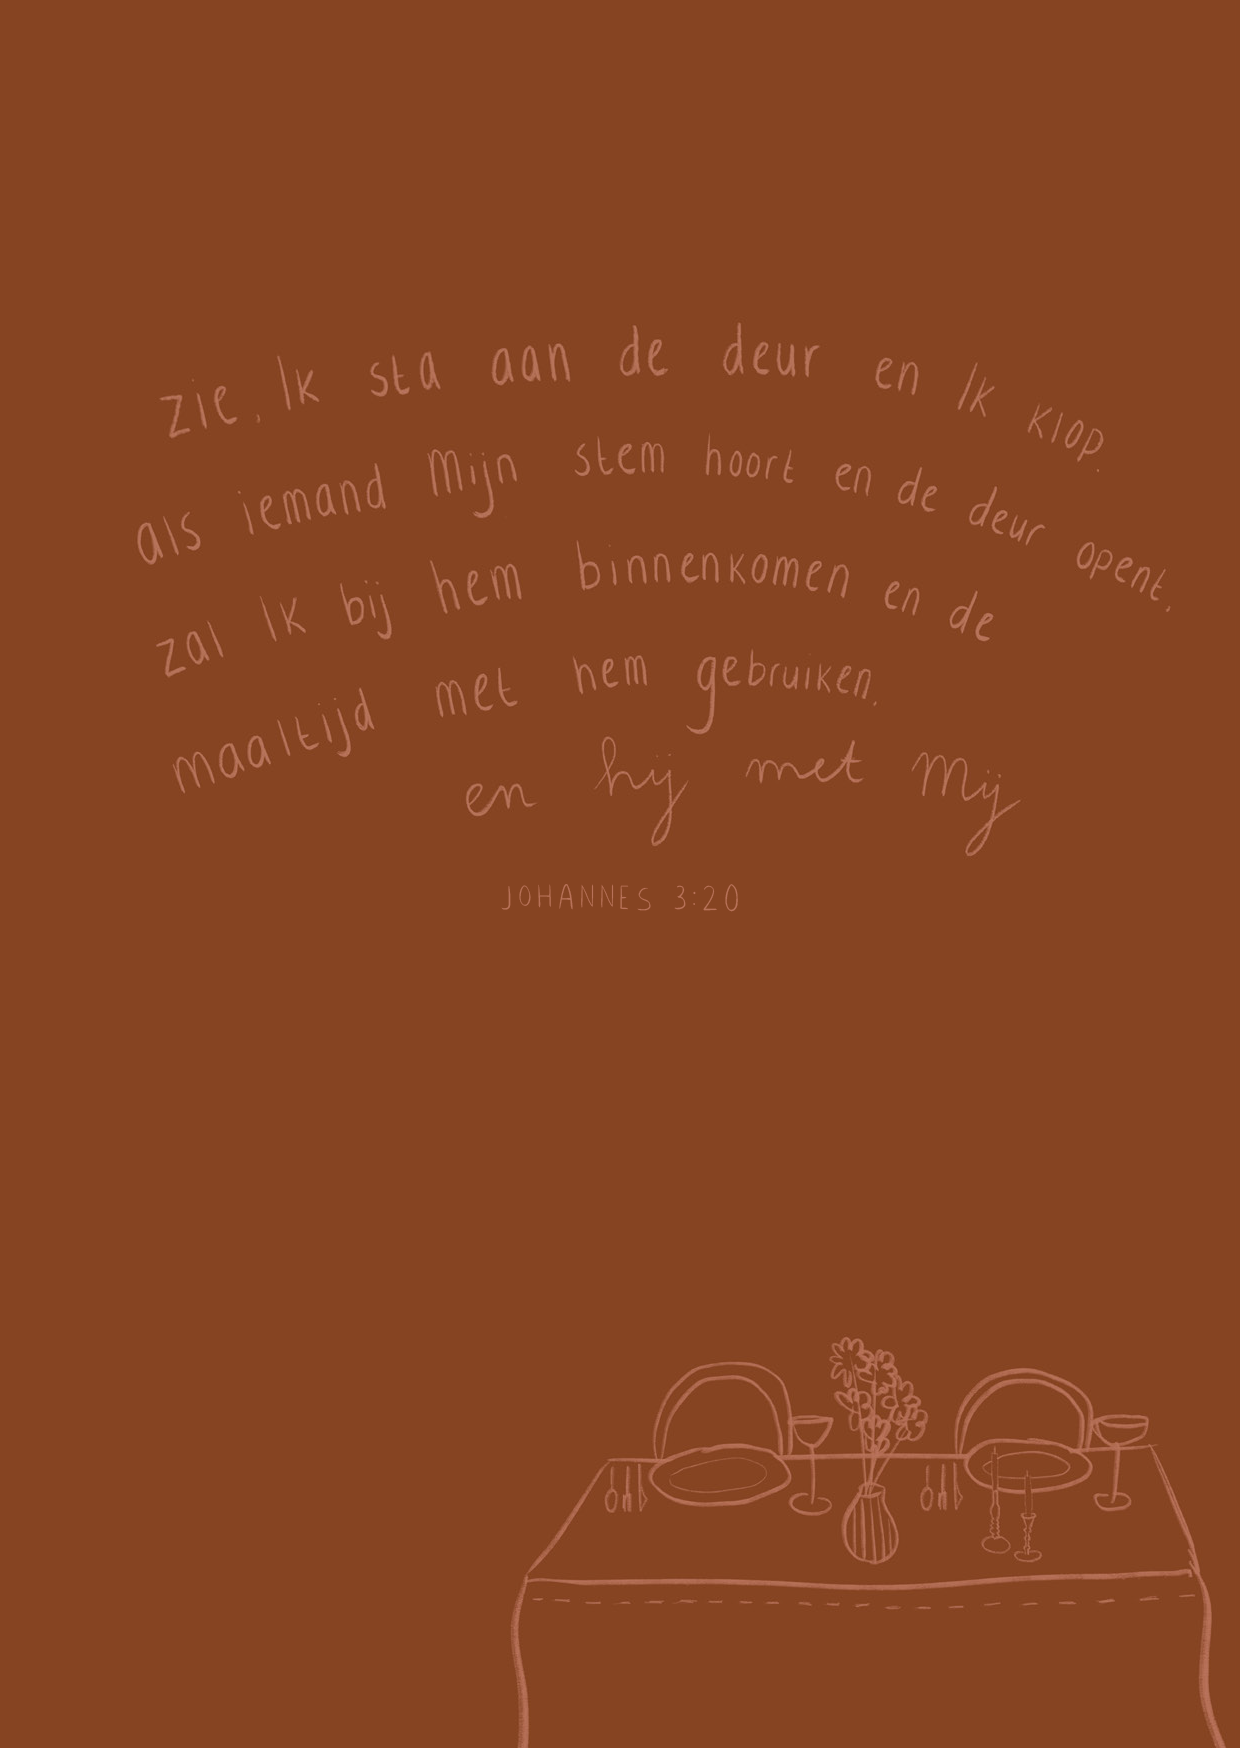 zie, Ik sta aan de deur en Ik klop.
als iemand Mijn stem hoort en de deur opent,
zal Ik bij hem binnenkomen en de
maaltijd met hem gebruiken,
en hij met Mij
JOHANNES 3:20